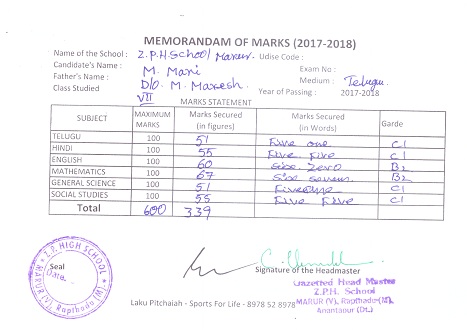 MEMORANDAM OF MARKS (2017-2018)
Name of the School : Z.P.H.School Marur. Udise Code :
Candidate's Name : M. Mani Exam No :
Father's Name : D/o M. Maresh Medium : Telugu.
Class Studied VII Year of Passing : 2017-2018
MARKS STATEMENT
SUBJECT MAXIMUM MARKS Marks Secured (in figures) Marks Secured (in Words) Garde
TELUGU 100 51 Five one C1
HINDI 100 55 Five. Five C1
ENGLISH 100 60 Six. Zero B2
MATHEMATICS 100 67 Six seven B2
GENERAL SCIENCE 100 51 Five one C1
SOCIAL STUDIES 100 55 Five Five C1
Total 600 339
Z.P. HIGH SCHOOL
MARUR (V), Rapthadu (M)
Seal
Date.
Signature of the Headmaster
Gazetted Head Master
Z.P.H. School
MARUR (V), Rapthadu(M),
Anantapur (Dt.)
Laku Pitchaiah - Sports For Life - 8978 52 8978